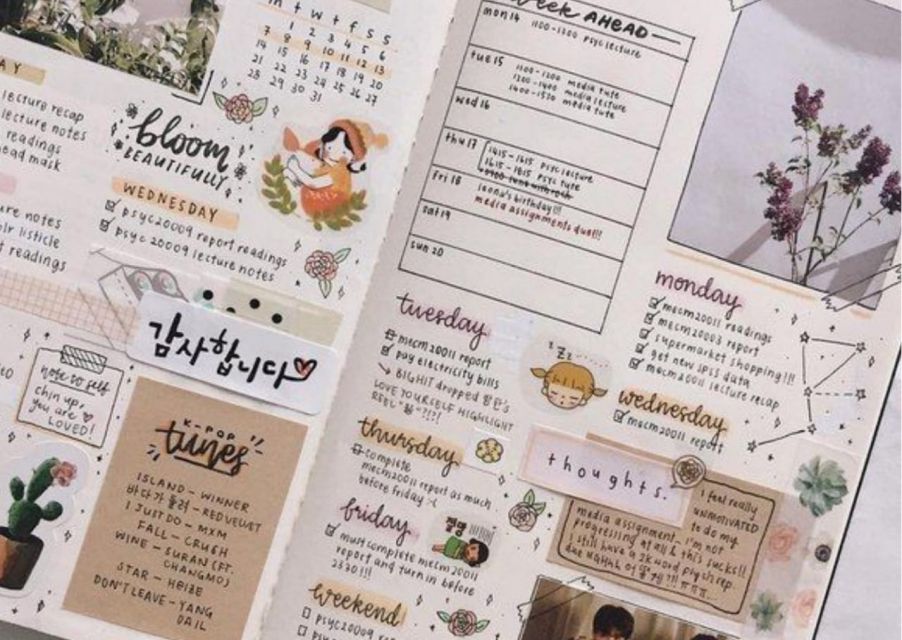 m t w t f s s
1 2 3 4 5 6
7 8 9 10 11 12 13
14 15 16 17 18 19 20
21 22 23 24 25 26 27
28 29 30 31
lecture recap
lecture notes
readings
mask
bloom
BEAUTIFULLY
WEDNESDAY
psyc20009 report readings
psyc20009 lecture notes
notes
listicle
readings
감사합니다
note to self
chin up,
you are
LOVED!
K-POP
tunes
ISLAND - WINNER
바다가 들려 - RED VELVET
I JUST DO - MXM
FALL - CRUSH
WINE - SURAN (FT.
CHANGMO)
STAR - HEIZE
DON'T LEAVE - YANG
DAIL
week AHEAD
mon 14
1100-1300 psyc lecture
tue 15
1100-1200 media tute
1200-1400 media lecture
1400-1530 media tute
wed 16
thu 17
1415-1615 psyc lecture
1615-1815 psyc tute
fri 18
birthday!!!
media assignments due!!!
sat 19
sun 20
tuesday
mecm20011 report
pay electricity bills
BIGHIT dropped
LOVE YOURSELF HIGHLIGHT
REEL
thursday
complete
mecm20011 report as much
before friday
friday
must complete mecm20011
report and turn in before
2330!!!
weekend
psyc20009
zzz
monday
mecm20011 readings
mecm20003 report
supermarket shopping!!!
get new data
mecm20011 lecture recap
wednesday
mecm20011 report
thoughts.
I feel really
UNMOTIVATED
to do my
media assignment - I'm not
progressing at all & this sucks!!
I still have a 2k word psych rep.
due